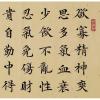 欲寡精神爽
思多血氣衰
少飲不亂性
忍氣免傷財
貴自勤中得